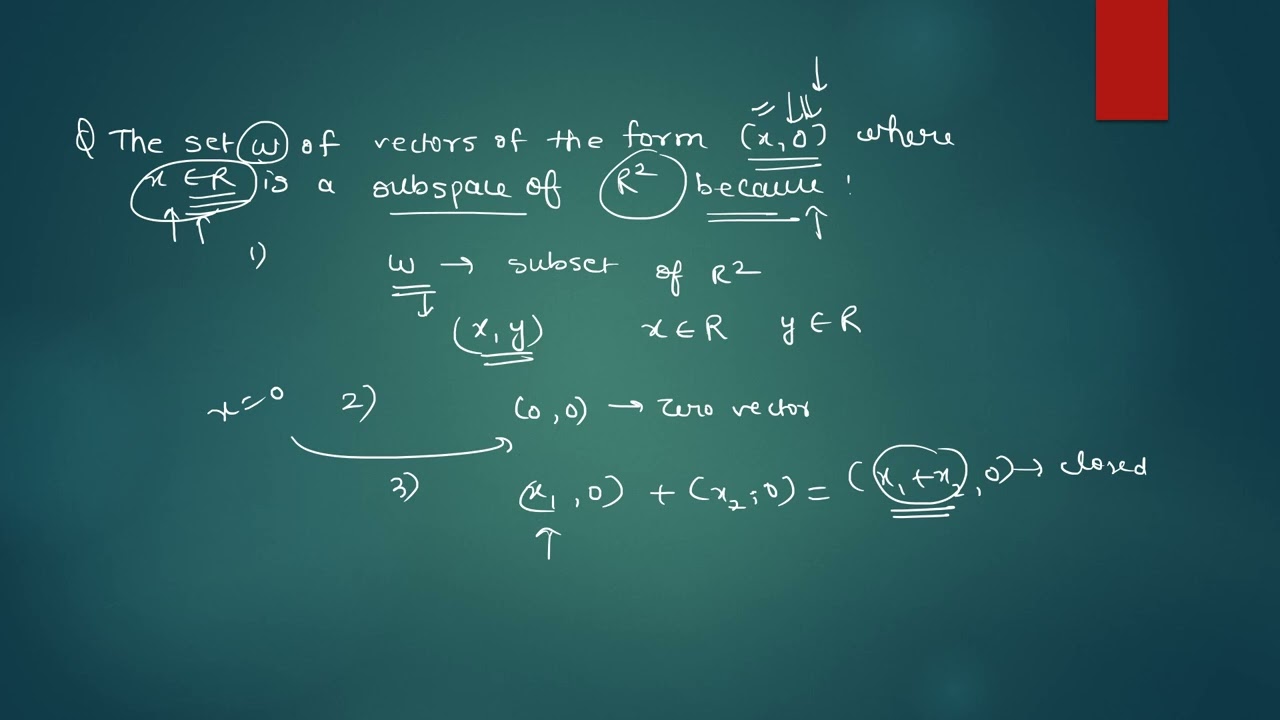 Q The set w of vectors of the form (x, 0) where
x ∈ R is a subspace of R² because :
1) w → subset of R²
(x, y) x ∈ R y ∈ R
x = 0 2) (0, 0) → zero vector
3) (x₁, 0) + (x₂, 0) = (x₁ + x₂, 0) → closed